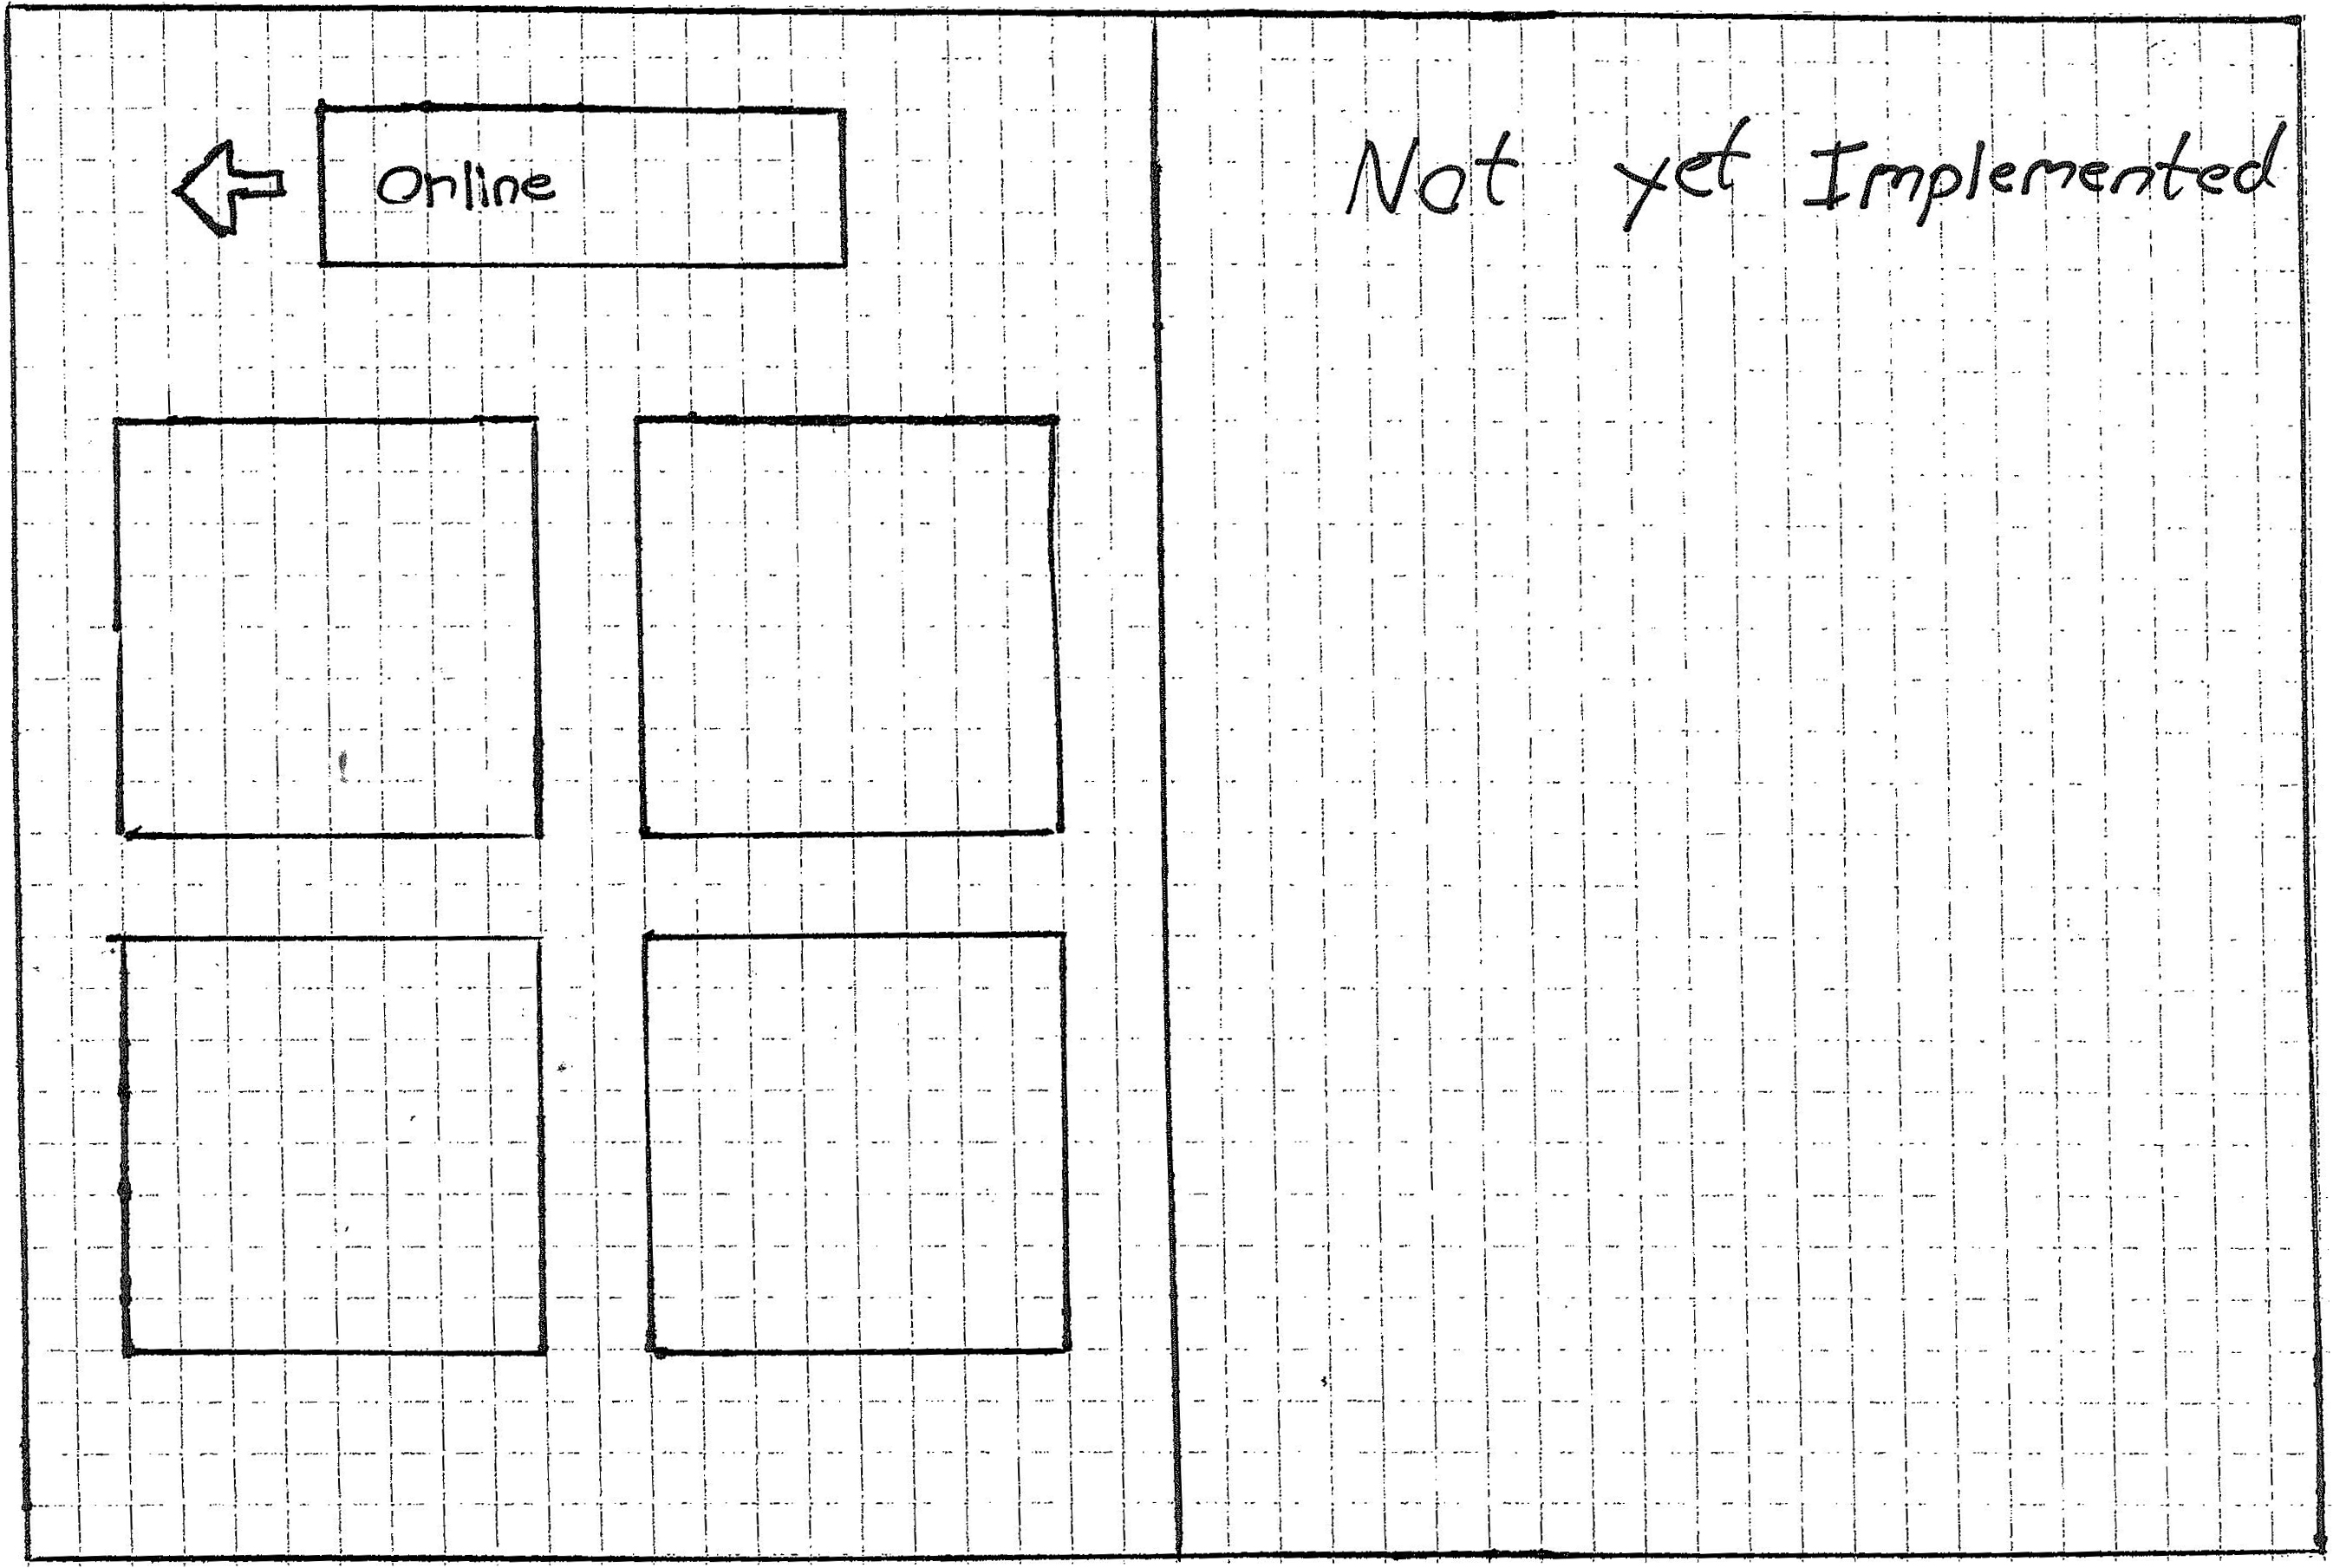 Online
Not yet Implemented